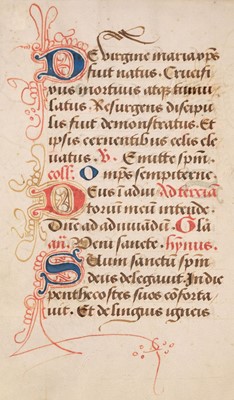 De virgine maria xp̄s
fuit natus. Crucifi
xus mortuus atqꝫ tumu
latus. Resurgens discipu
lis fuit demonstratus. Et
ipsis cernentibus celis ele
uatus. V. Emitte sp̄m.
coll. Omp̄s sempiterne.
Deus in adiu Ad terciā
torium meū intende.
Dne ad adiuuādū. Glā
añ. Veni sancte. hymus.
Suum sanctū sp̄m
deus delegauit. In die
penthecostes suos cōforta
uit. Et de linguis igneis